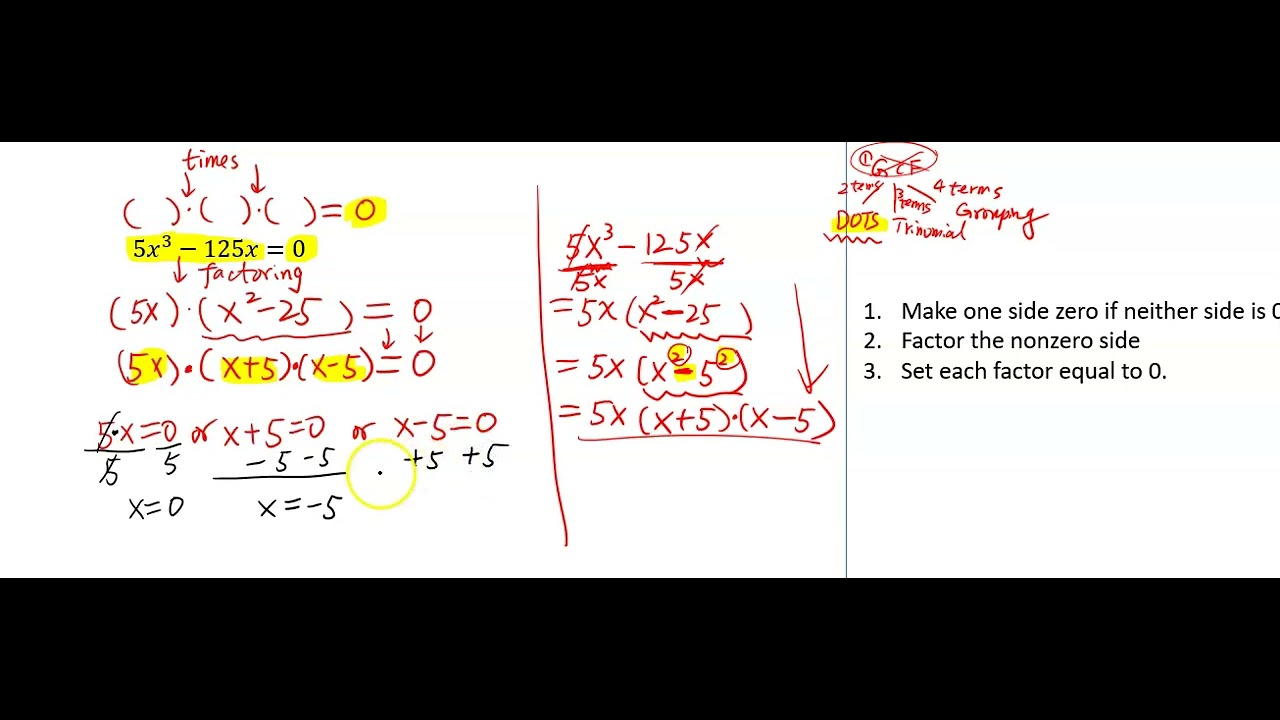 times
( )·( )·( ) = 0
5x³ − 125x = 0
factoring
(5x)·(x²−25) = 0
(5x)·(x+5)·(x−5) = 0
5·x=0 or x+5=0 or x−5=0
5 5 −5 −5 +5 +5
x=0 x=−5
5x³ − 125x
5x 5x
=5x(x²−25)
=5x(x²−5²)
=5x(x+5)·(x−5)
① GCF
2 terms 3 terms 4 terms
DOTS Trinomial Grouping
1. Make one side zero if neither side is 0
2. Factor the nonzero side
3. Set each factor equal to 0.